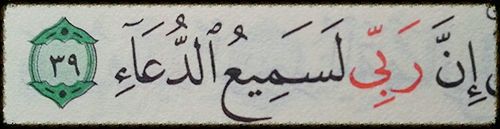 إِنَّ رَبِّي لَسَمِيعُ ٱلدُّعَآءِ ٣٩